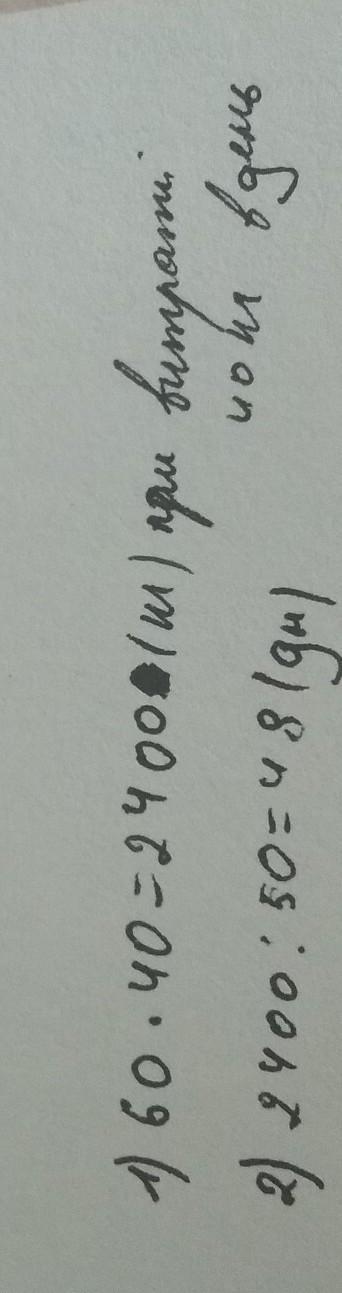 1) 60 · 40 = 2400 (ш) при витраті
40ш в день
2) 2400 : 50 = 48 (дн)